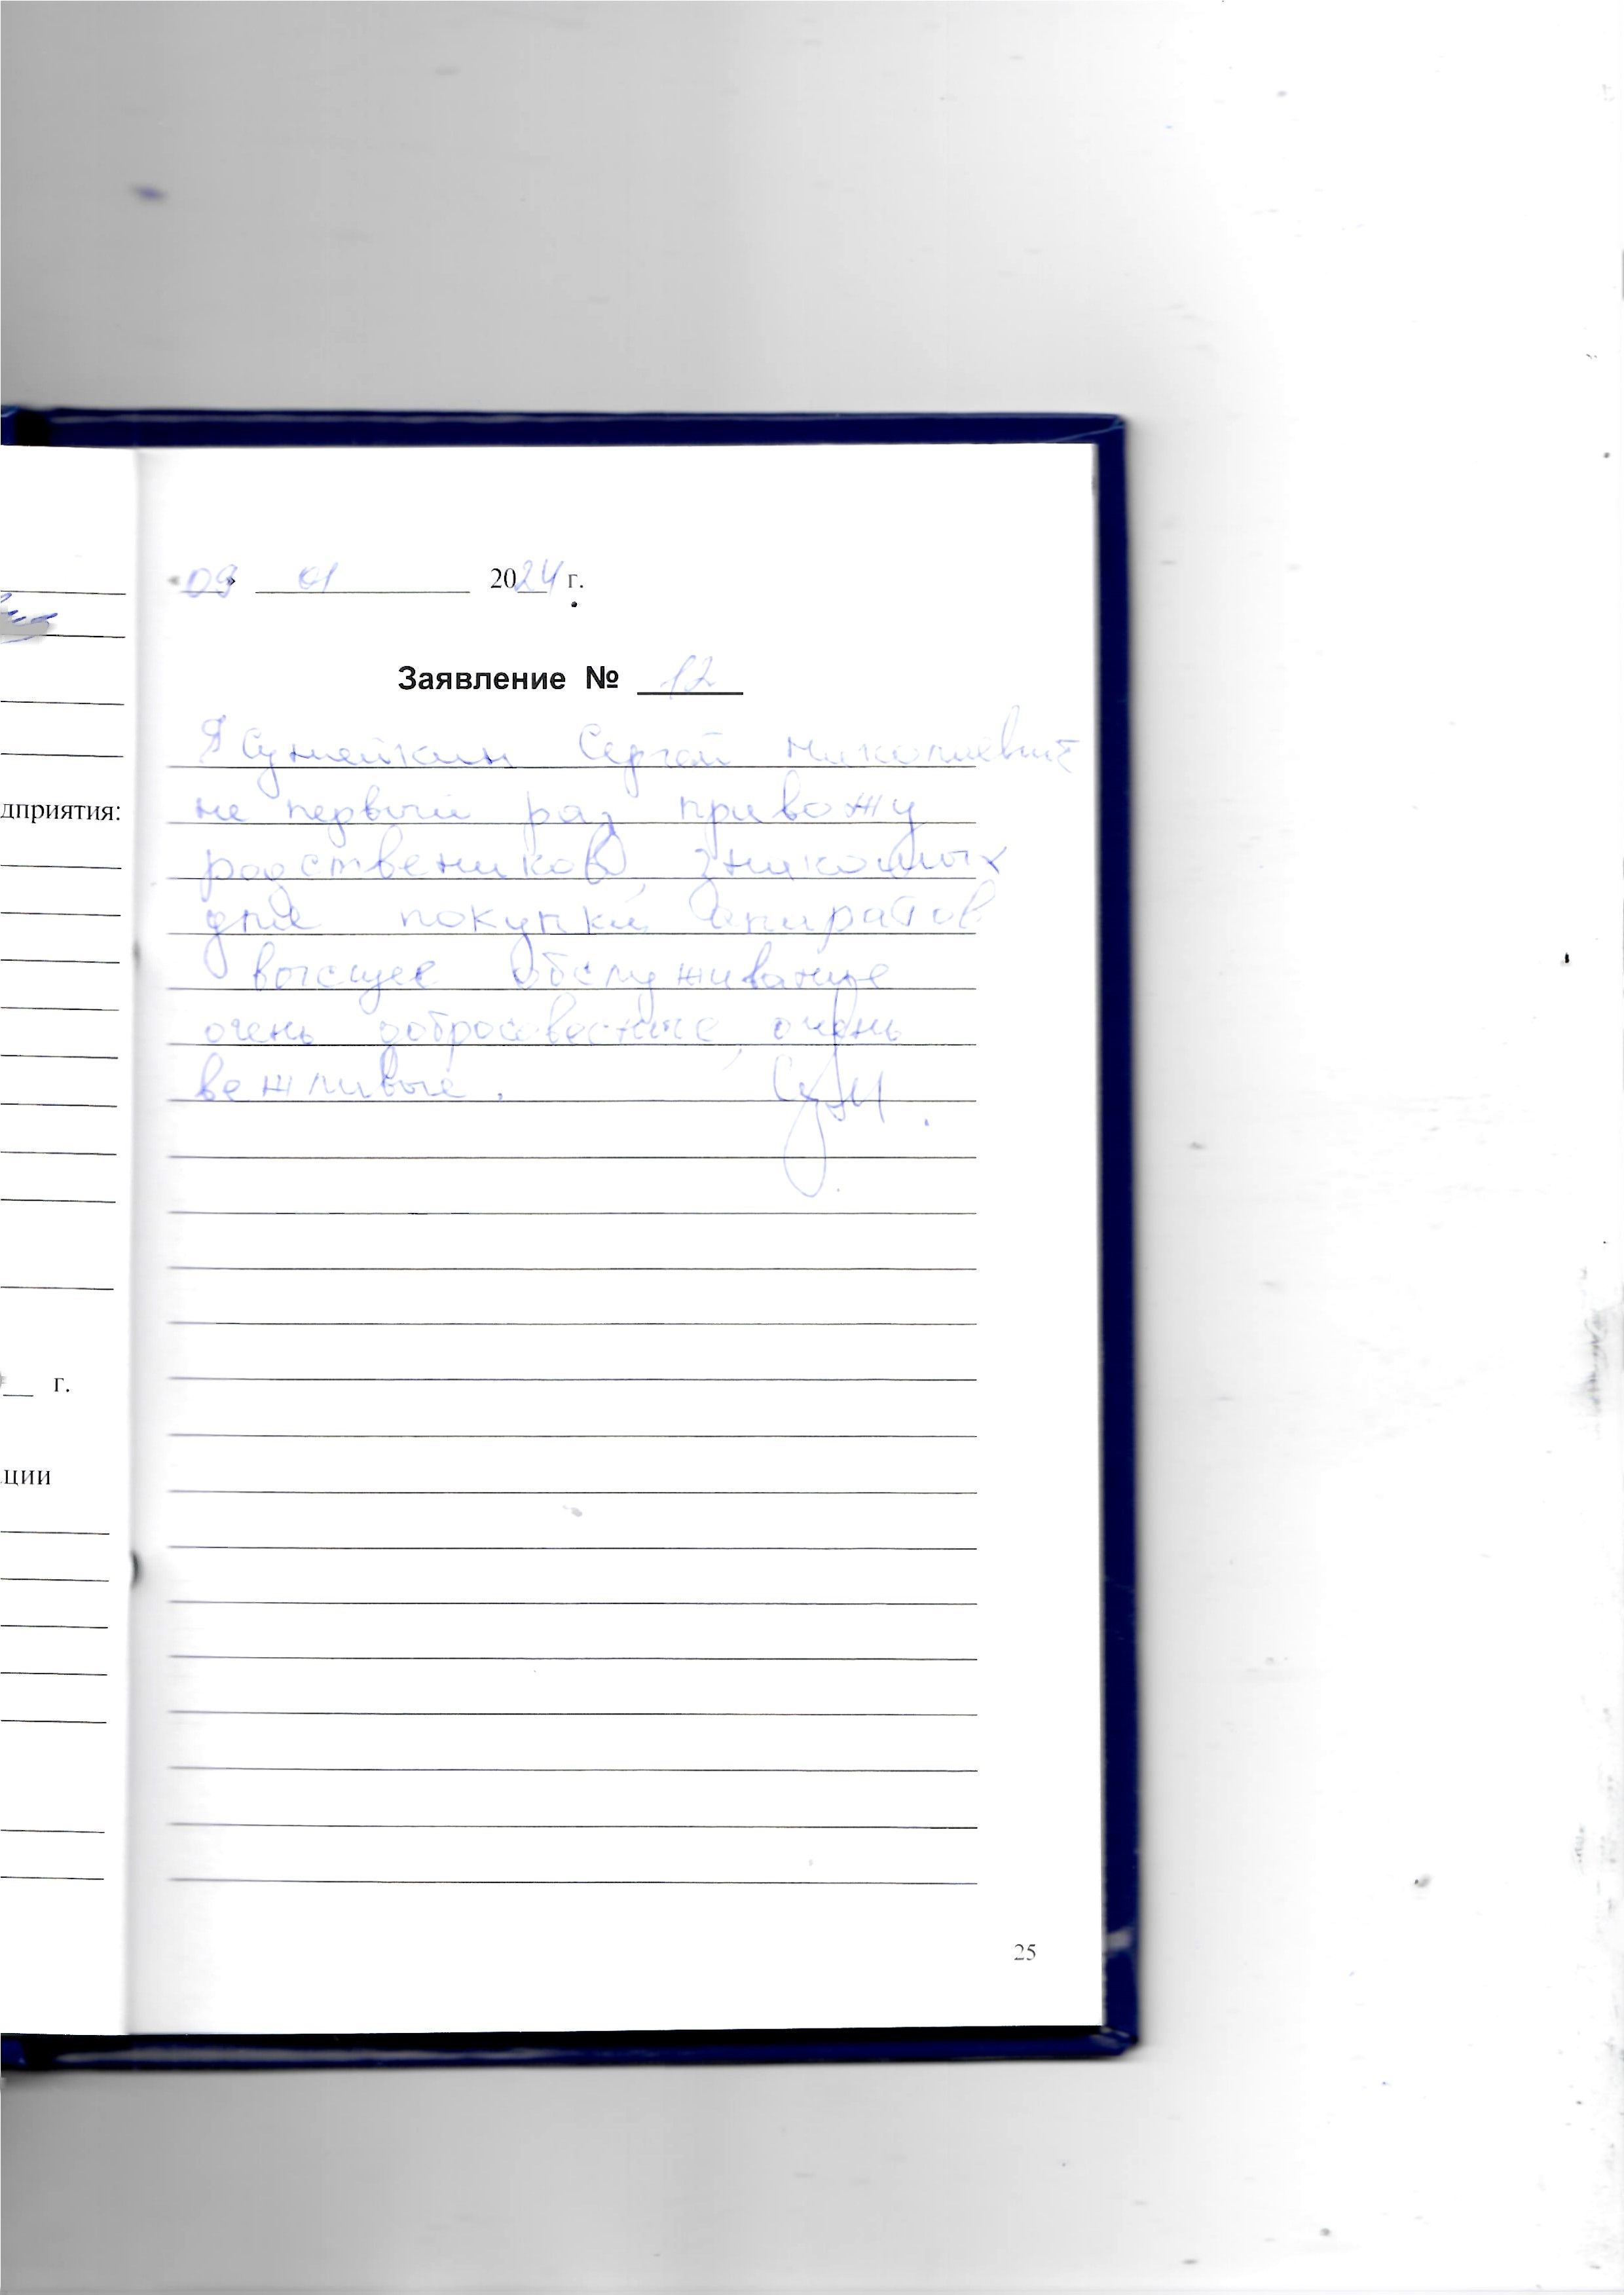 «09» 01 2024 г.
Заявление № 12
Я Сергей Николаевич
не первый раз привожу
родствеников, знакомых
для покупки апаратов
высшее обслуживание
очень добросовестные, очень
вежливые.
дприятия:
г.
ции
25